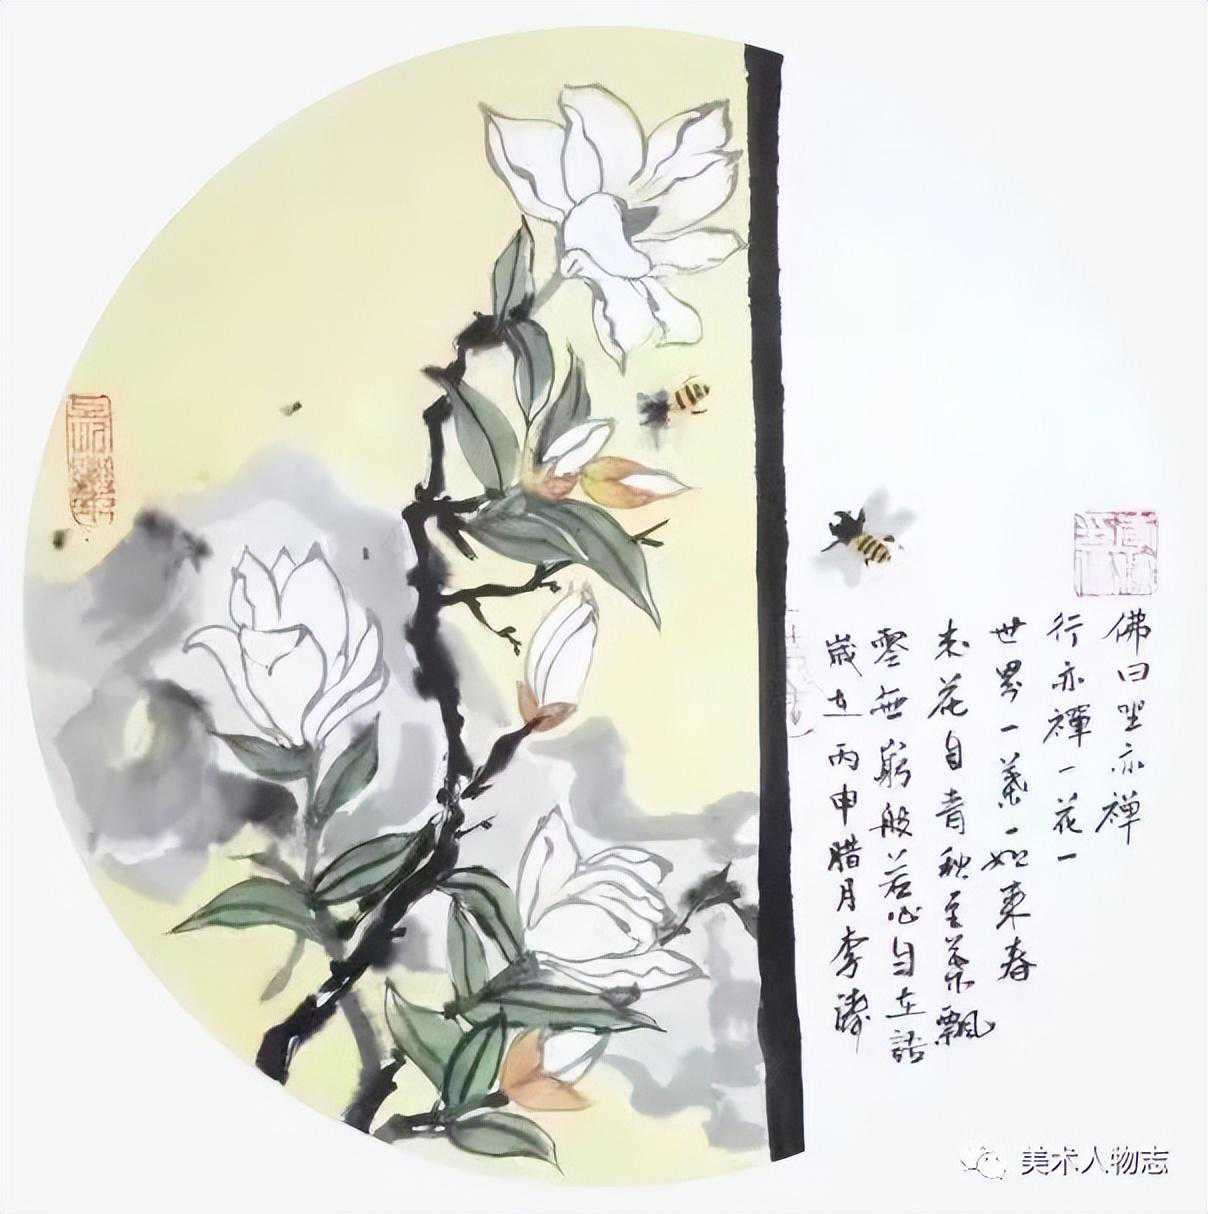 佛曰坐亦禅
行亦禪一花一
世界一葉一如来春
来花自青秋至葉飄
零無窮般若心自在語
歲在丙申腊月李濤
美术人物志